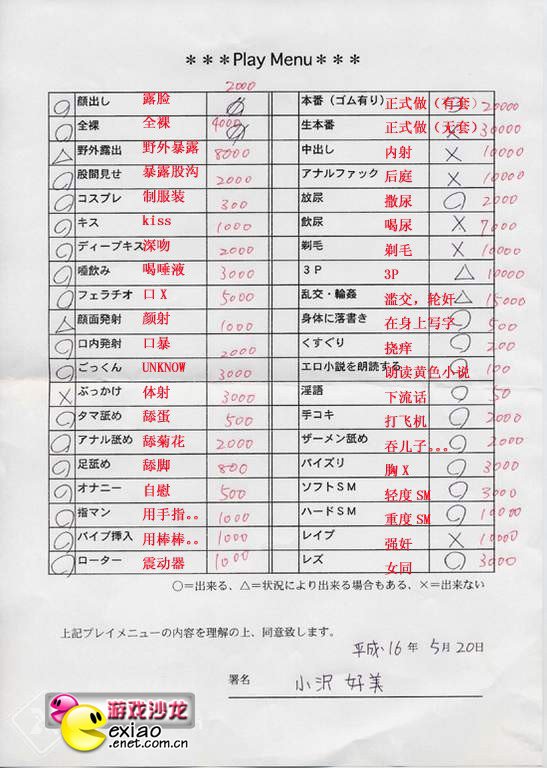 ＊＊＊Play Menu＊＊＊
2000
○ 顔出し 露脸
○ 全裸 全裸 4000
△ 野外露出 野外暴露 8000
○ 股間見せ 暴露股沟 2000
○ コスプレ 制服装 300
○ キス kiss 1000
○ ディープキス 深吻 2000
○ 唾飲み 喝唾液 3000
○ フェラチオ 口X 5000
△ 顔面発射 颜射 1000
○ 口内発射 口暴 2000
○ ごっくん UNKNOW 3000
× ぶっかけ 体射 3000
○ タマ舐め 舔蛋 500
○ アナル舐め 舔菊花 2000
○ 足舐め 舔脚 800
○ オナニー 自慰 500
○ 指マン 用手指。。 1000
○ バイブ挿入 用棒棒。。 1000
○ ローター 震动器 1000
本番（ゴム有り） 正式做（有套） 20000
生本番 正式做（无套） × 30000
中出し 内射 × 10000
アナルファック 后庭 × 10000
放尿 撒尿 ○ 2000
飲尿 喝尿 × 7000
剃毛 剃毛 × 10000
３Ｐ 3P △ 10000
乱交・輪姦 滥交，轮奸 △ 15000
身体に落書き 在身上写字 ○ 500
くすぐり 挠痒 ○ 200
エロ小説を朗読する 朗读黄色小说 ○ 100
淫語 下流话 ○ 50
手コキ 打飞机 ○ 2000
ザーメン舐め 吞儿子。。。 ○ 2000
パイズリ 胸X ○ 3000
ソフトＳＭ 轻度SM ○ 3000
ハードＳＭ 重度SM ○ 10000
レイプ 强奸 × 10000
レズ 女同 ○ 3000
○＝出来る、△＝状況により出来る場合もある、×＝出来ない
上記プレイメニューの内容を理解の上、同意致します。
平成16年 5月20日
署名 小沢 好美
游戏沙龙
exiao
.enet.com.cn